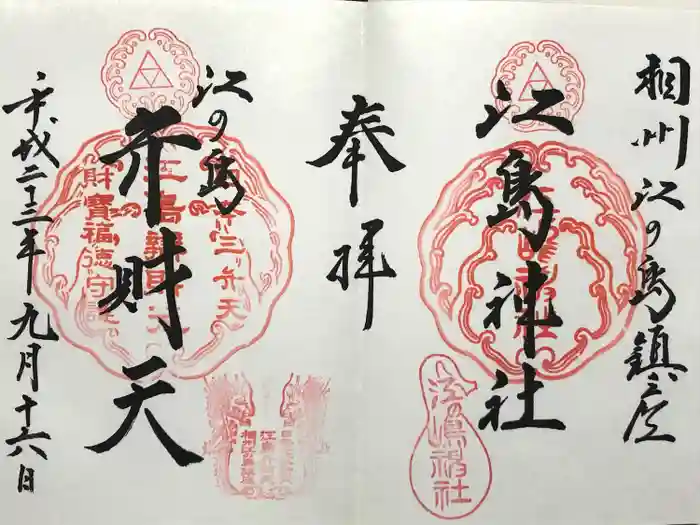 相州江の島鎮座
江島神社
奉拝
江の島
弁財天
平成二十三年九月十六日
日本三弁天
江島辨財天
財寶福徳守護
江の嶋神社